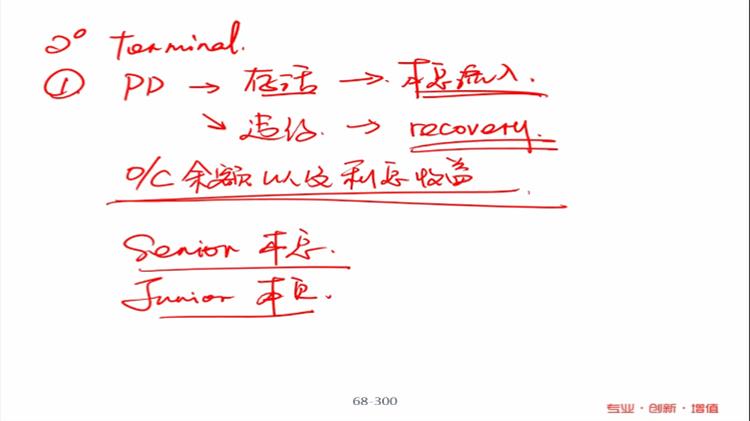 2° terminal.
① PD → 存活 → 本息流入.
↘ 违约. → recovery.
O/C 余额以及利息收益.
Senior 本息.
Junior 本息.
68-300
专业·创新·增值